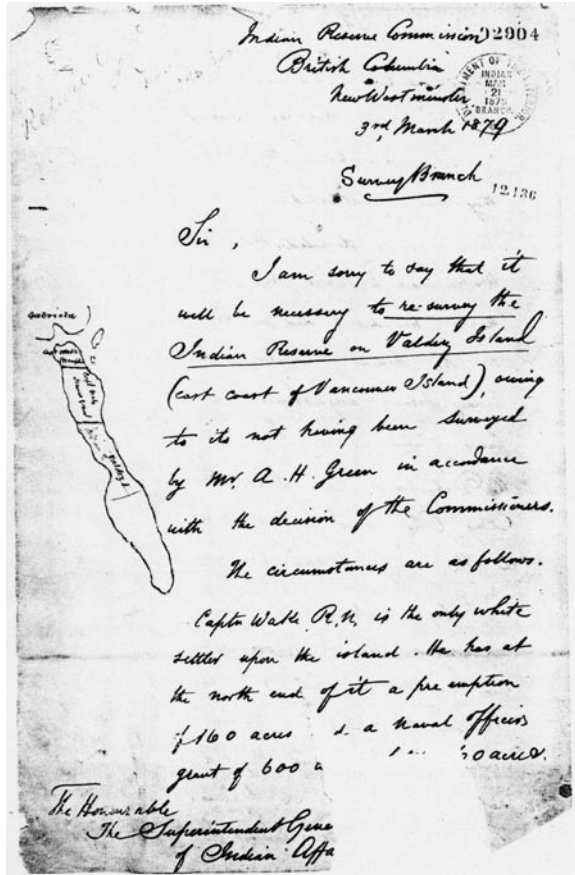 Indian Reserve Commission 92904
British Columbia
New Westminster
3rd March 1879
DEPARTMENT OF THE INTERIOR
INDIAN
MAR
21
1879
BRANCH
Survey Branch
12,136
Sir,
I am sorry to say that it
will be necessary to re-survey the
Indian Reserve on Valdez Island
(east coast of Vancouver Island), owing
to its not having been surveyed
by Mr. A. H. Green in accordance
with the decision of the Commissioners.
The circumstances are as follows.
Captn Wake R.N. is the only white
settler upon the island. He has at
the north end of it a pre emption
of 160 acres a Naval Officers
grant of 600 a 0 acres.
The Honourable
The Superintendent Gene
of Indian Affa
Gabriola
Valdez I